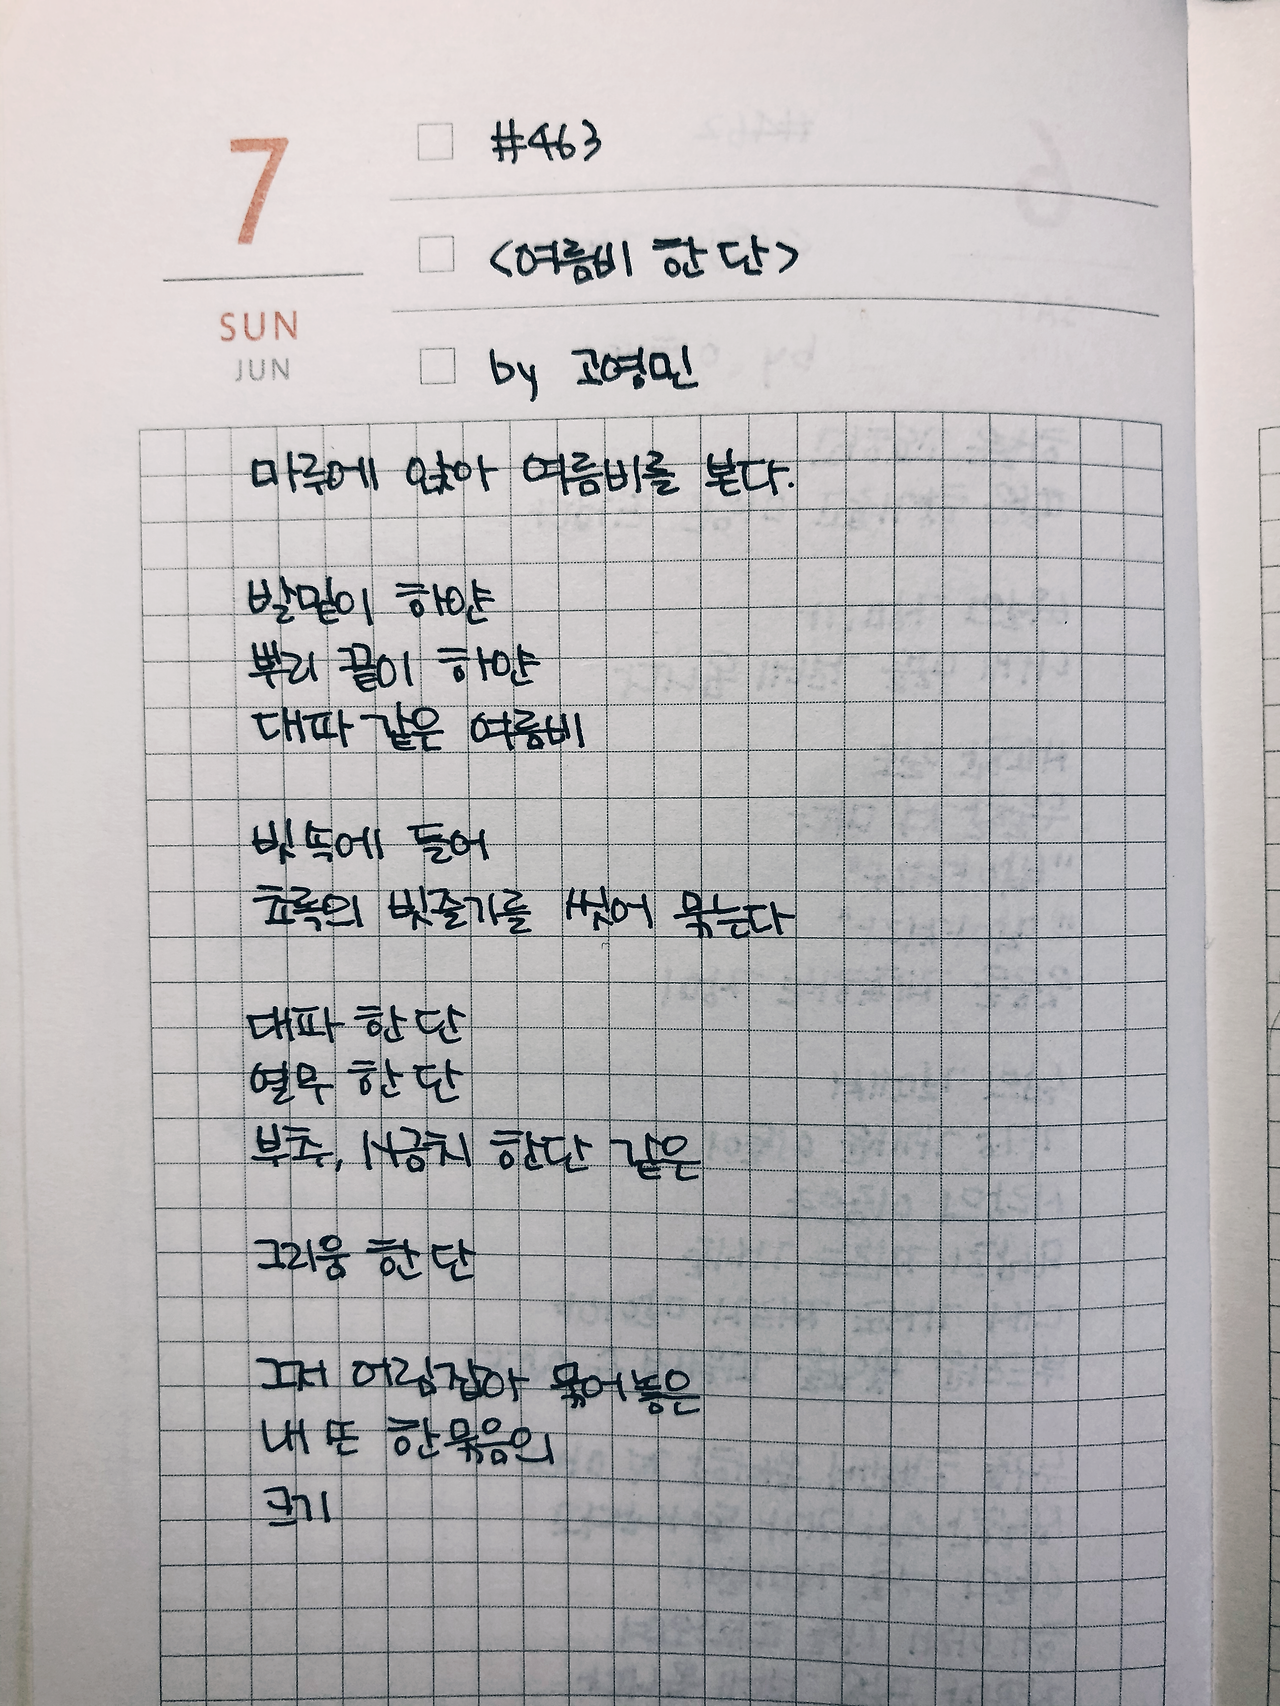 7
SUN
JUN
#463
<여름비 한 단>
by 고영민
마루에 앉아 여름비를 본다.
발밑이 하얀
뿌리 끝이 하얀
대파 같은 여름비
빗속에 들어
초록의 빗줄기를 씻어 묶는다
대파 한 단
열무 한 단
부추, 시금치 한단 같은
그리움 한 단
그저 어림잡아 묶어놓은
내 또 한묶음의
크기